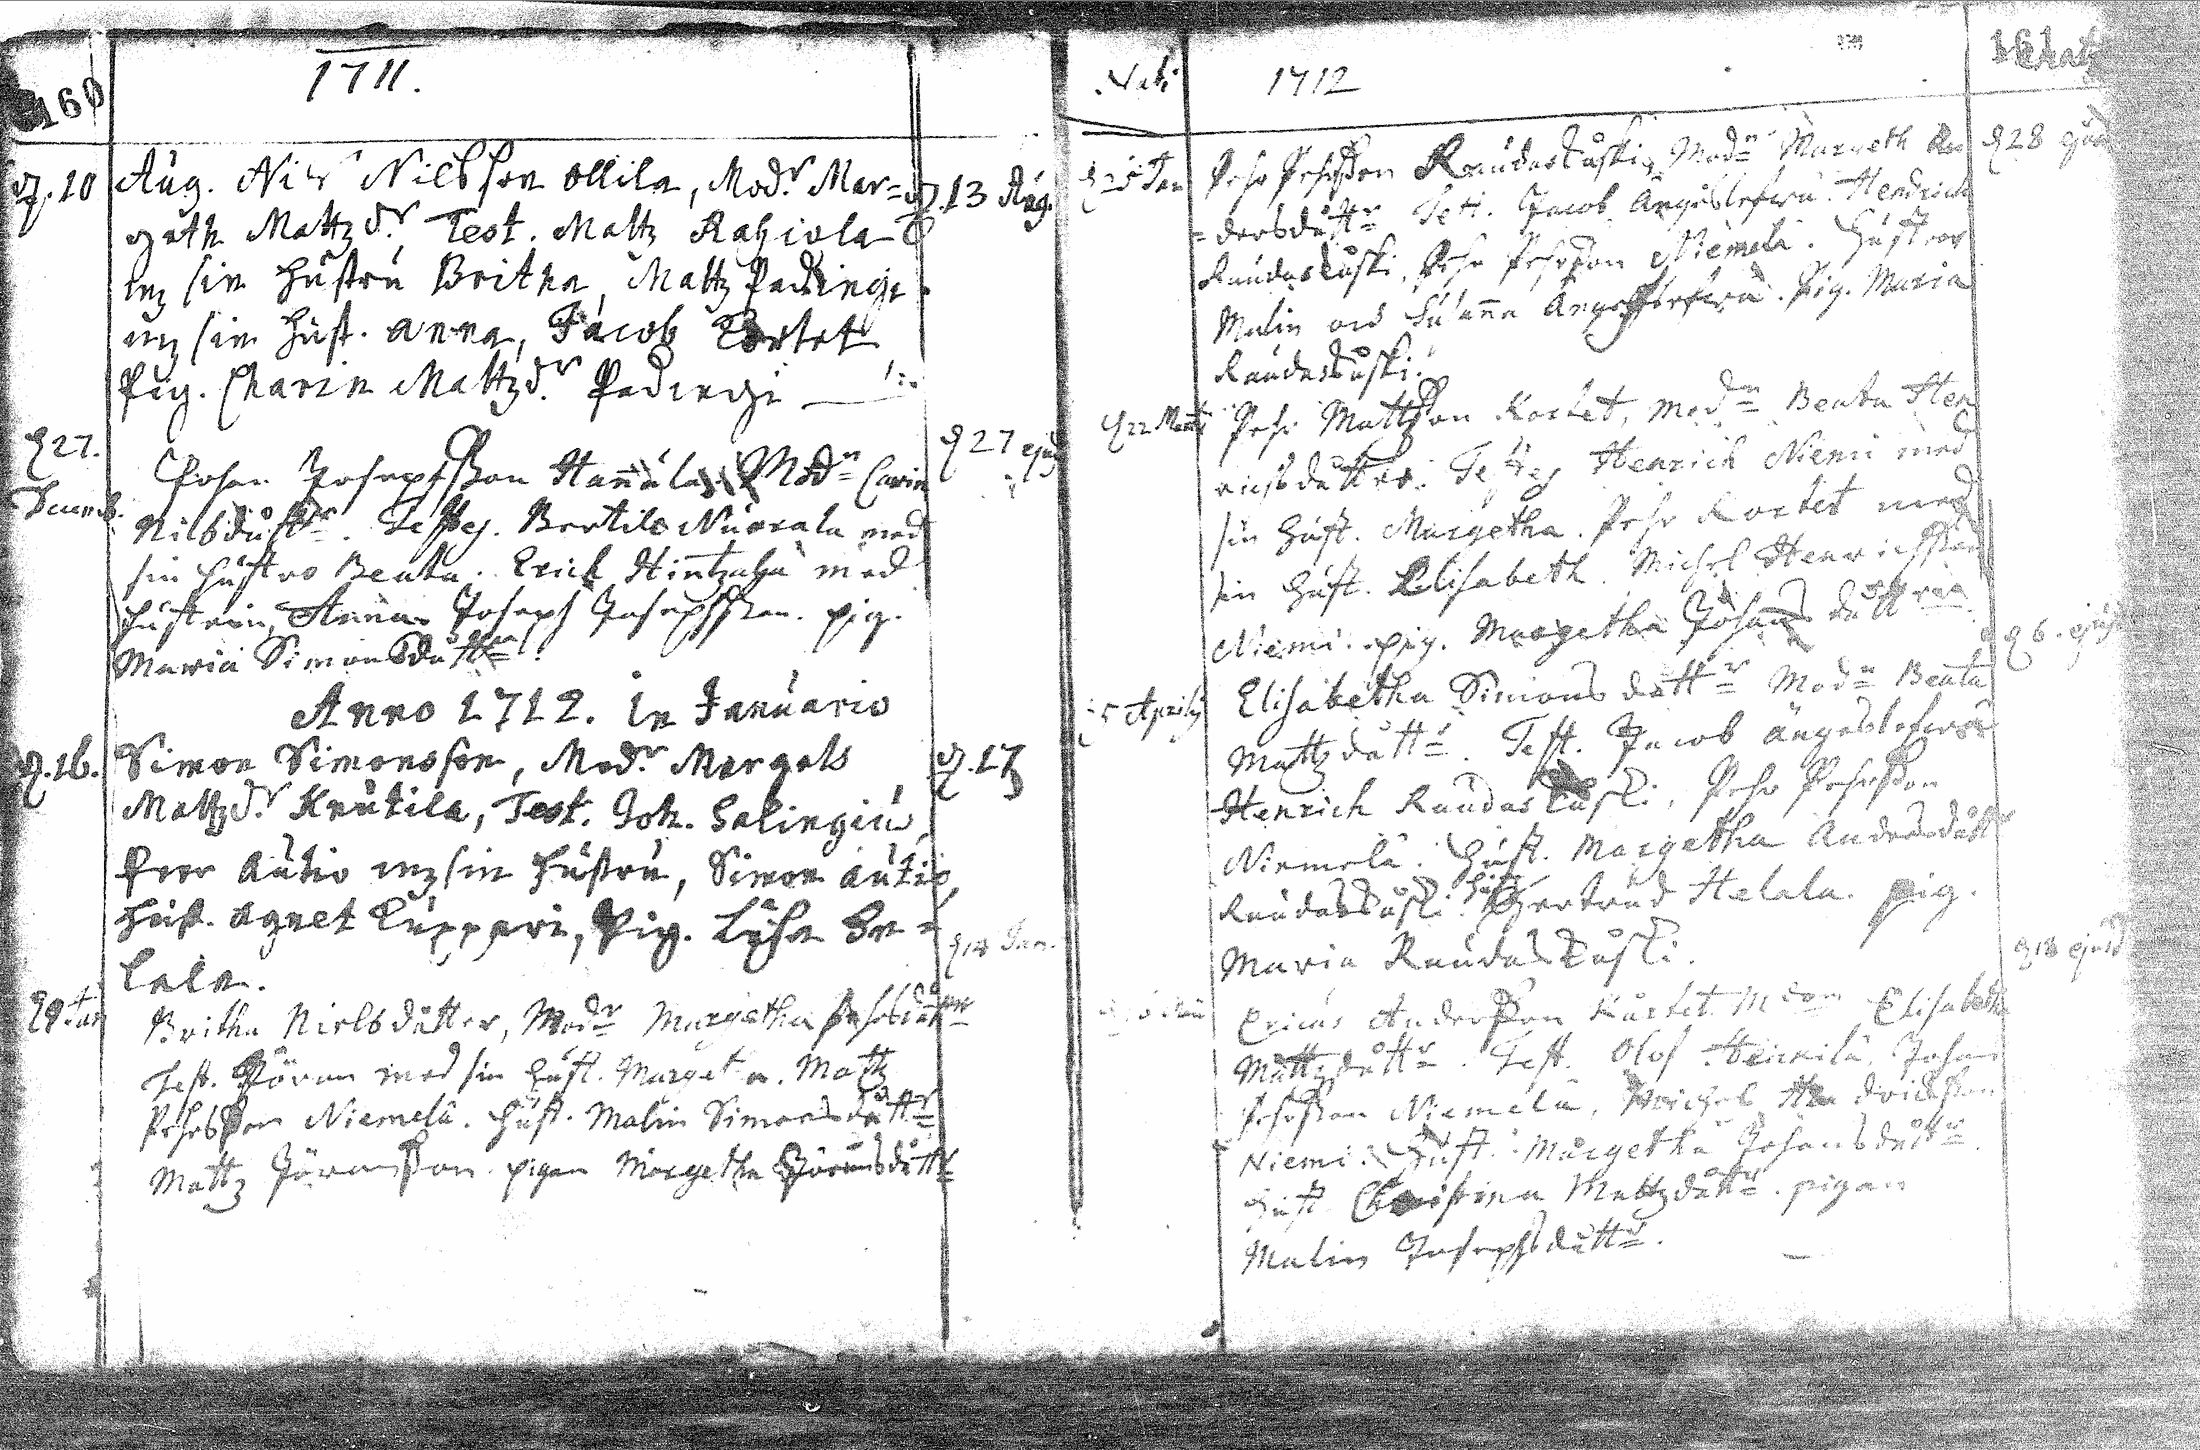 160
1711.
d. 10 Aug. Nils Nilsson Ollila, Modr. Mar= d. 13 Aug.
geth Mattzdr, Test. Mattz
mz sin Hustru Britha, Mattz
mz sin Hust. Anna, Jacob Cortet
Pig. Charin Mattzdr.
d 27. Decemb.
Johan Josephsson Modr Carin d 27 ejusd
Nilsdottr. Testes. Bertil med
sin Hustro Beata. Erich med
Hustrun, Anna Joseph Josephsson. pig.
Maria Simonsdottr.
Anno 1712. in Januario
d. 16. Simon Simonsson, Modr. Margata d. 17
Mattzdr. Krutila, Test. Joh. Salingius,
Peer Autio mz sin Hustru, Simon Autio,
Hust. Agnet Lupperi, Pig. Lisa Sa=
lala.
d 9 Jan Britha Nielsdotter, Modr Margetha Pehrsdottr d 14 Jan.
Test. Jöran med sin Hust. Marget a. Mattz
Pehrsson Niemelä. Hust. Malin Simonsdottr
Mattz Jöransson pigan Margetha Jöransdottr
Nati 1712 161
d 25 Jan Pehr Pehrsson Raudaskoski, Modr Margeth An d 28 ejusd
=dersdottr Test. Jacob Ängeslefvä. Hendrich
Raudaskoski, Pehr Pehrsson Niemelä. Hustror
Malin och Susanna Ängeslefvä. Pig. Maria
Raudaskoski.
d 22 Marti Pehr Mattsson Kortet, modr Beata Hen
richsdotter. Testes Henrich Niemi med
sin Hust. Margetha. Pehr Kortet med
sin Hust. Elisabeth. Michel Henrichsson
Niemi. pig. Margetha Johans dotter
5 Aprilis Elisabetha Simons dottr Modr Beata d 6. ejusd
Mattzdottr. Test. Jacob ängeslefvä
Henrich Raudaskoski, Pehr Pehrsson
Niemelä. Hust. Margetha Andersdottr
Raudaskoski. Hust. Gertrud Helala. pig.
Maria Raudaskoski.
Ericus Andersson Kortet. Modr Elisabetha d 18 ejusd
Mattzdottr. Test. Olof Heikkilä, Johan
Pehrsson Niemelä, Michel Hendrichsson
Niemi. Hust. Margetha Johansdottr.
Hust. Christina Mattzdottr. pigan
Malin Josephsdottr.